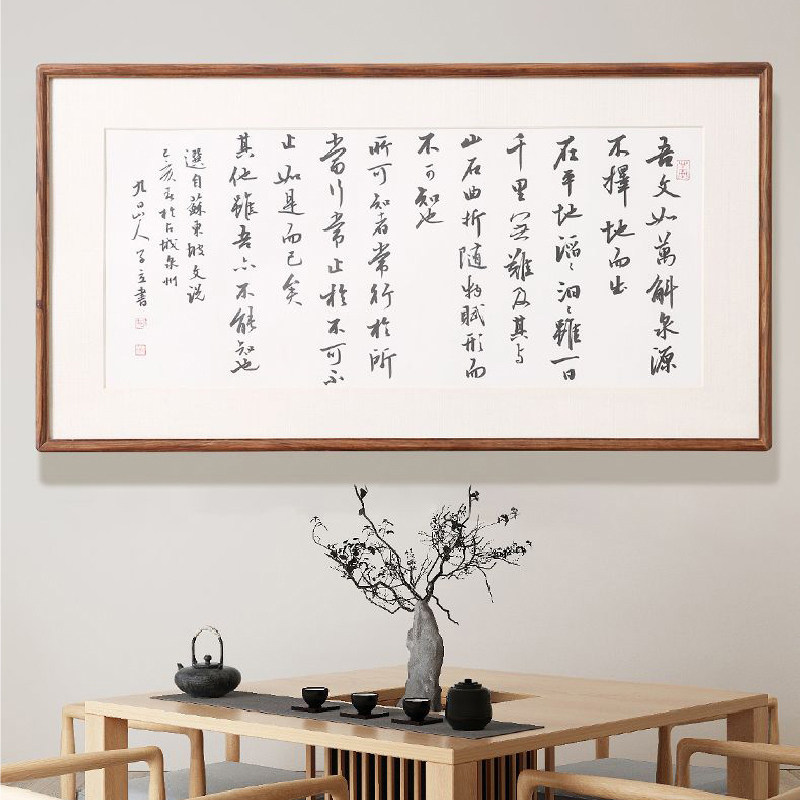 吾文如萬斛泉源
不擇地而出
在平地滔〻汩〻雖一日
千里無難及其与
山石曲折随物賦形而
不可知也
所可知者常行於所
當行常止於不可不
止如是而已矣
其他雖吾亦不能知也
選自蘇東坡文説
己亥春於古城泉州
九日山人子立書